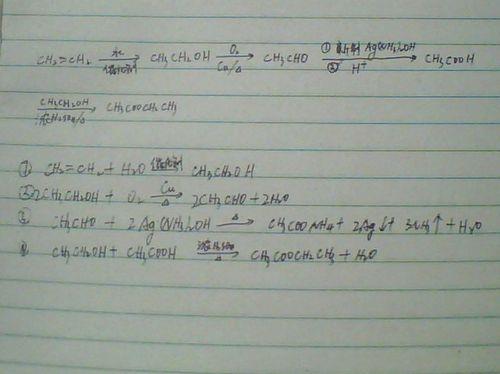 CH2=CH2 水 催化剂 → CH3CH2OH O2 Cu/△ → CH3CHO ① Ag(NH3)2OH ② H+ → CH3COOH
CH3CH2OH 浓H2SO4/△ → CH3COOCH2CH3
① CH2=CH2 + H2O 催化剂 CH3CH2OH
② 2CH3CH2OH + O2 Cu △ → 2CH3CHO + 2H2O
③ CH3CHO + 2Ag(NH3)2OH △ → CH3COONH4 + 2Ag↓ + 3NH3↑ + H2O
④ CH3CH2OH + CH3COOH 浓H2SO4 △ → CH3COOCH2CH3 + H2O